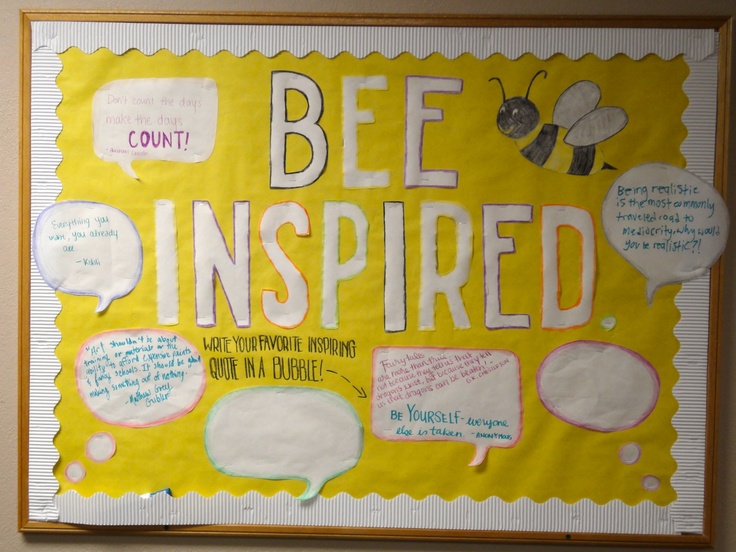 BEE
INSPIRED.
Don't count the days
make the days
COUNT!
Everything you
want, you already
are.
Being realistic
is the most commonly
traveled road to
mediocrity. Why would
you be realistic?!
"Art shouldn't be about
training or materials or the
ability to afford expensive paints
& fancy schools. It should be about
making something out of nothing
WRITE YOUR FAVORITE INSPIRING
QUOTE IN A BUBBLE!
Fairy tales
are more than true:
not because they tell us that
dragons exist, but because they tell
us that dragons can be beaten!
BE YOURSELF - everyone
else is taken. - ANONYMOUS